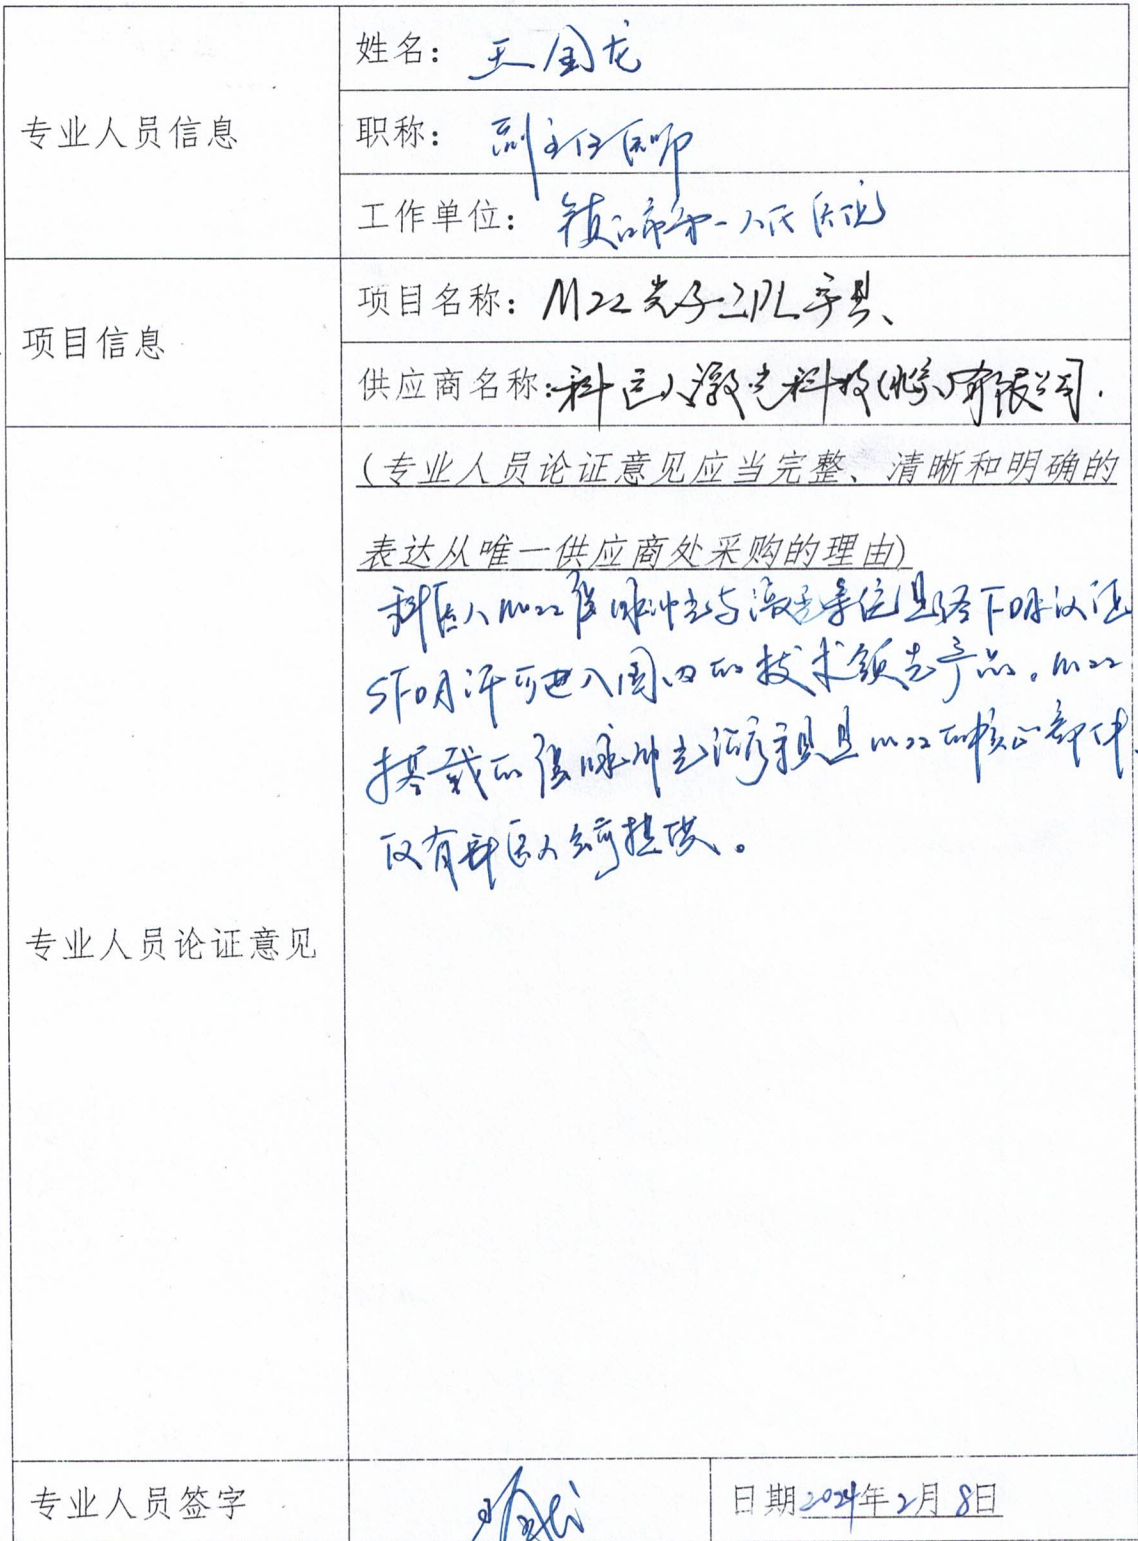 专业人员信息
姓名：王金龙
职称：副主任医师
工作单位：镇江市第一人民医院
项目信息
项目名称：M22光子IPL手具、
供应商名称：科医人激光科技(北京)有限公司.
专业人员论证意见
(专业人员论证意见应当完整、清晰和明确的
表达从唯一供应商处采购的理由)
科医人M22强脉冲光与激光系统是经FDA认证
SFDA许可进入国内的技术领先产品。M22
搭载的强脉冲光治疗手具是M22的核心部件
仅有科医人公司提供。
专业人员签字
王金龙
日期2024年2月8日